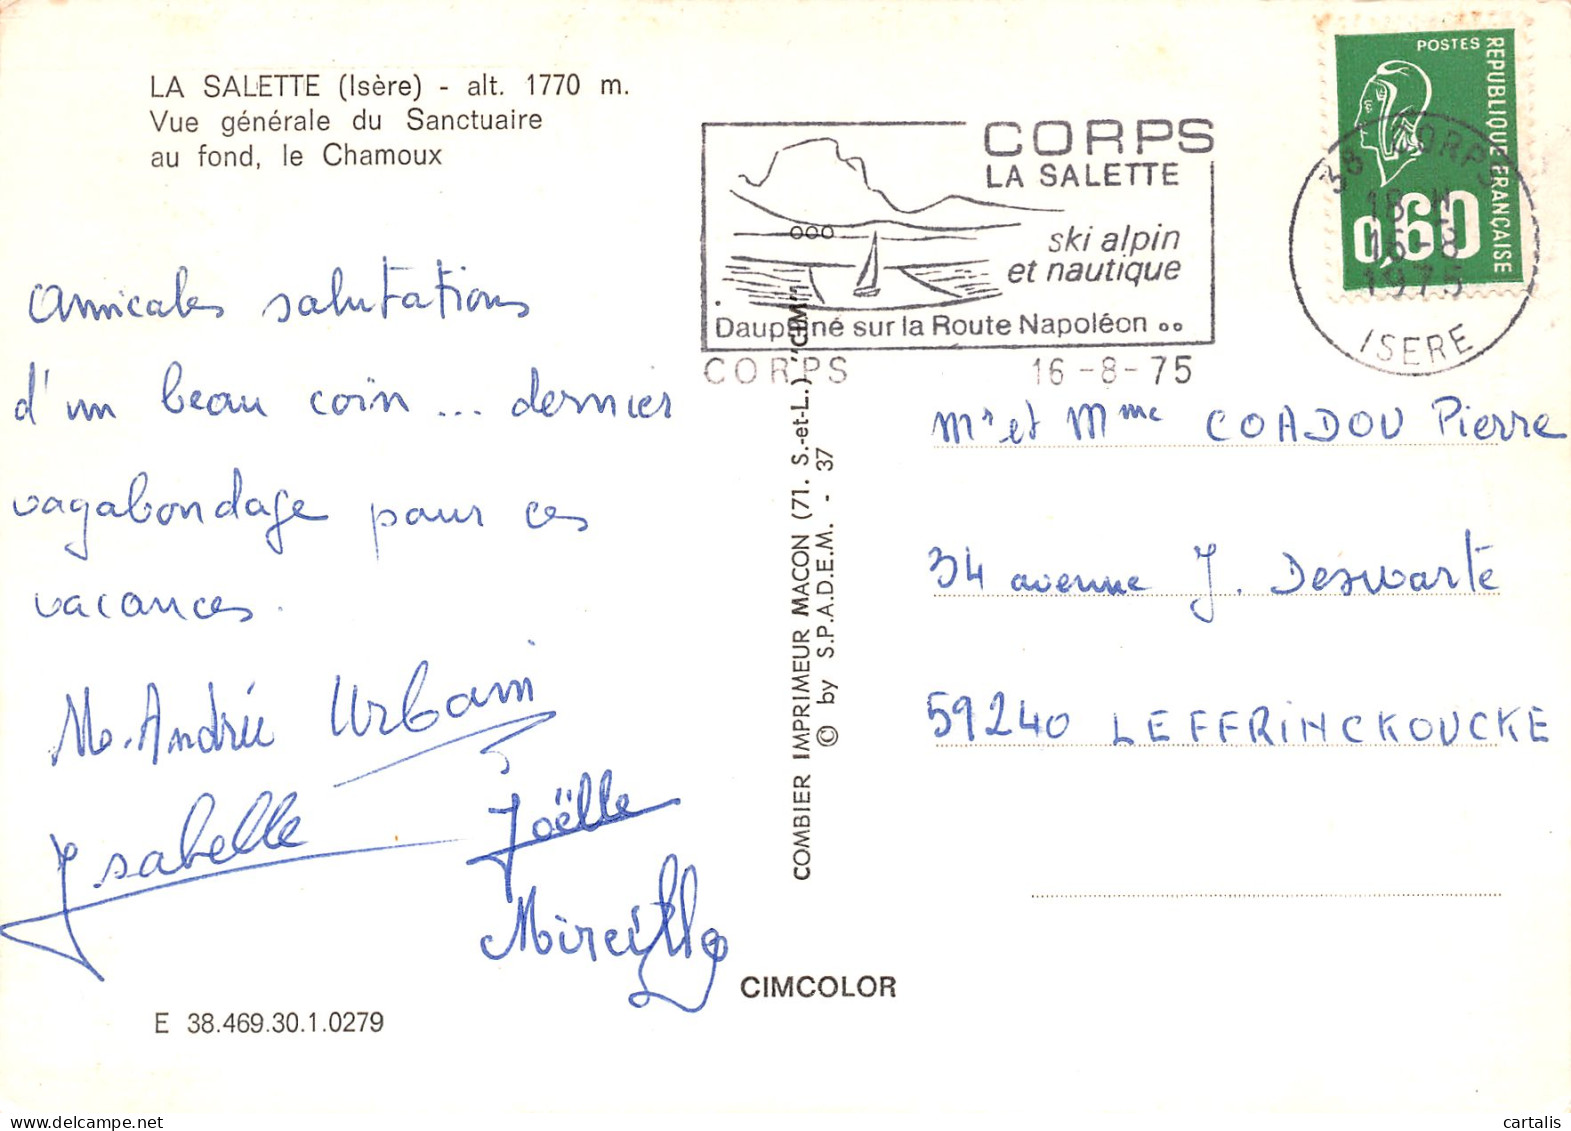 LA SALETTE (Isère) - alt. 1770 m.
Vue générale du Sanctuaire
au fond, le Chamoux
Amicales salutations
d'un beau coin ... dernier
vagabondage pour ces
vacances.
M. Andrée Urbain
Isabelle Joëlle
Mireille
E 38.469.30.1.0279
CORPS
LA SALETTE
ski alpin
et nautique
Dauphiné sur la Route Napoléon
CORPS 16-8-75
POSTES
REPUBLIQUE FRANÇAISE
0,60
38 CORPS
18 H
16-8
1975
ISERE
COMBIER IMPRIMEUR MACON (71. S.-et-L.) "CIM"
© by S.P.A.D.E.M. - 37
CIMCOLOR
Mr et Mme COADOU Pierre
34 avenue J. Deswarte
59240 LEFFRINCKOUCKE
cartalis